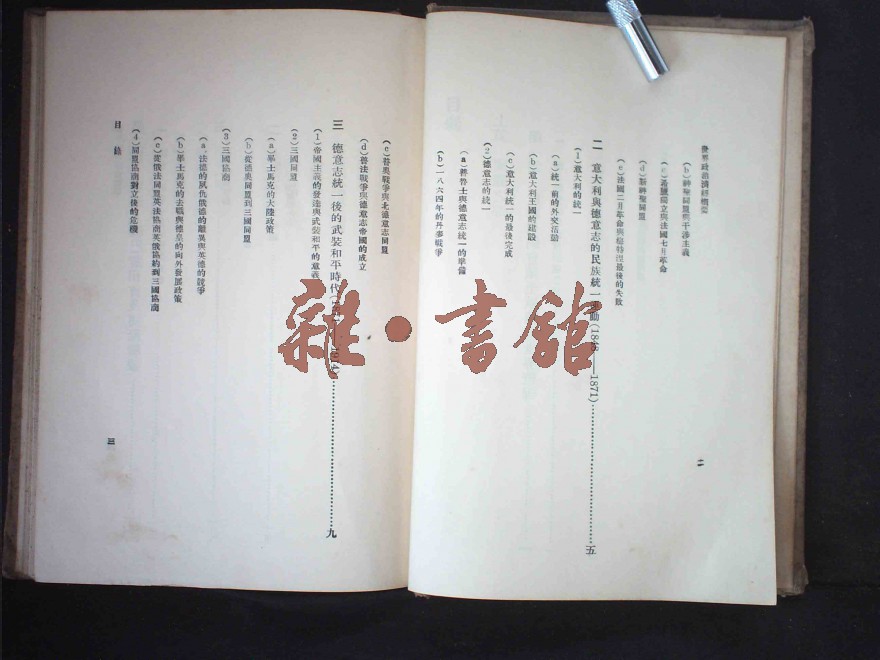 世界政治經濟概要
(b)神聖同盟與干涉主義
(c)希臘獨立與法國七月革命
(d)新神聖同盟
(e)法國二月革命與梅特涅最後的失敗
二 意大利與德意志的民族統一運動(1848——1871)……五
(1)意大利的統一
(a)統一前的外交活動
(b)意大利王國的建設
(c)意大利統一的最後完成
(2)德意志的統一
(a)普魯士與德意志統一的準備
(b)一八六四年的丹麥戰爭
二
(c)普奧戰爭與北德意志同盟
(d)普法戰爭與德意志帝國的成立
三 德意志統一後的武裝和平時代……九
(1)帝國主義的發達與武裝和平的意義
(2)三國同盟
(a)畢士馬克的大陸政策
(b)從德奧同盟到三國同盟
(3)三國協商
(a)法德的夙仇俄德的離異與英德的競爭
(b)畢士馬克的去職與德皇的向外發展政策
(c)從俄法同盟英法協商英俄協約到三國協商
(4)同盟協商對立後的危機
目錄
三
雜·書館